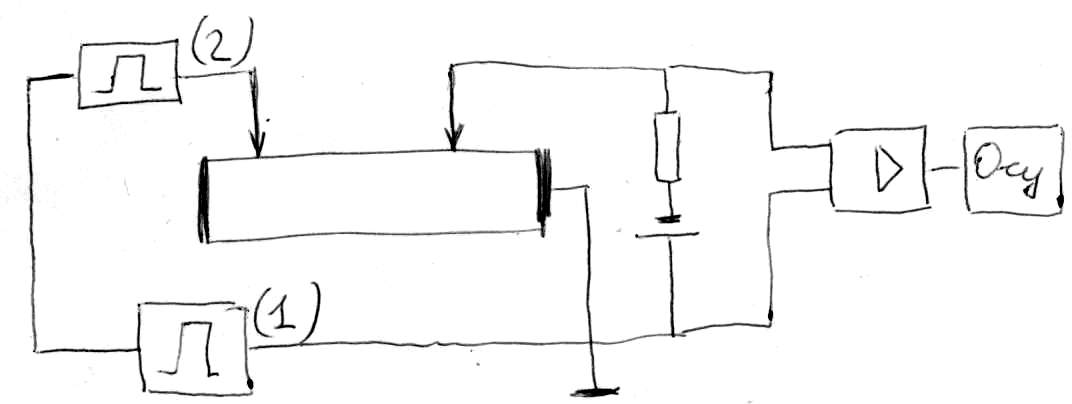 (2)
Осц
(1)